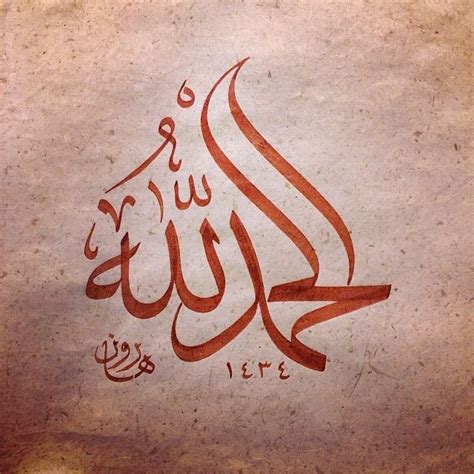 الحمد لله
١٤٣٤
هرون